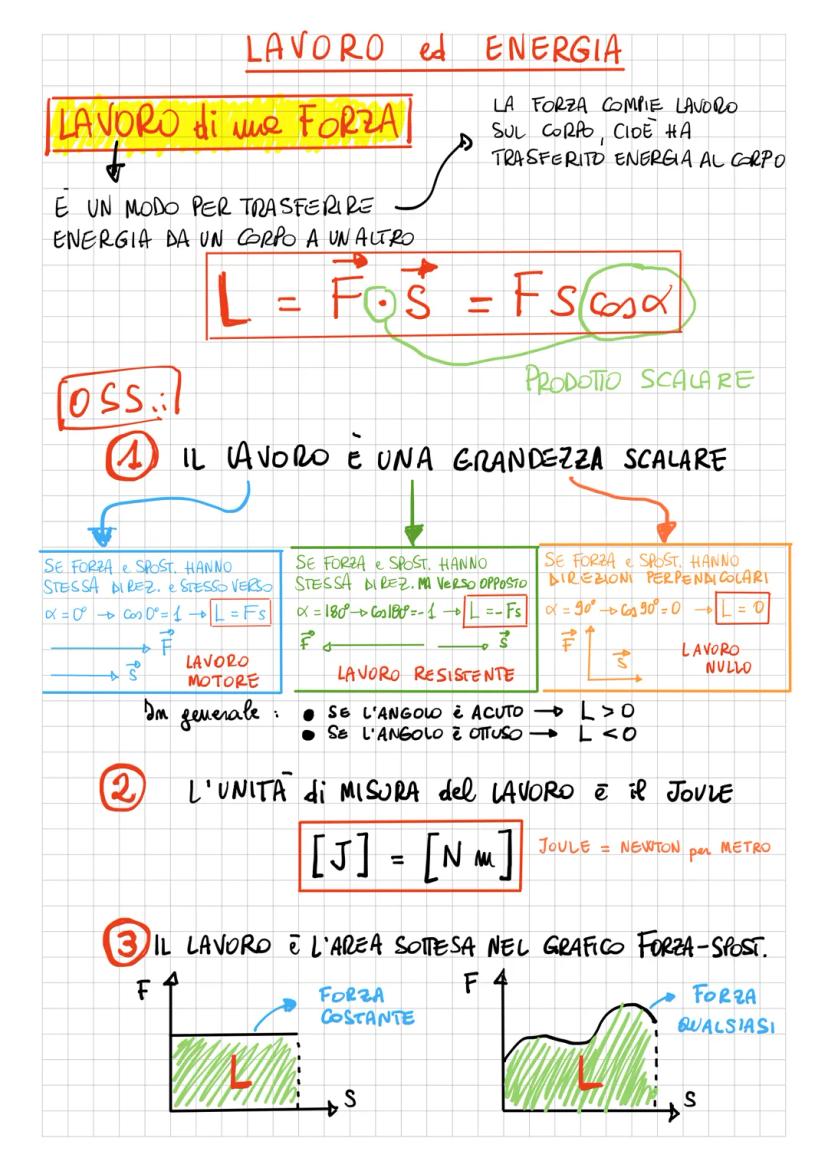 LAVORO ed ENERGIA
LAVORO di una FORZA
LA FORZA COMPIE LAVORO
SUL CORPO, CIOÈ HA
TRASFERITO ENERGIA AL CORPO
È UN MODO PER TRASFERIRE
ENERGIA DA UN CORPO A UN ALTRO
L = F⃗ · s⃗ = F s cos α
PRODOTTO SCALARE
OSS.:
1 IL LAVORO È UNA GRANDEZZA SCALARE
SE FORZA e SPOST. HANNO
STESSA DIREZ. e STESSO VERSO
α = 0° → cos 0° = 1 → L = Fs
F⃗
s⃗
LAVORO
MOTORE
SE FORZA e SPOST. HANNO
STESSA DIREZ. MA VERSO OPPOSTO
α = 180° → cos 180° = -1 → L = -Fs
F⃗ s⃗
LAVORO RESISTENTE
SE FORZA e SPOST. HANNO
DIREZIONI PERPENDICOLARI
α = 90° → cos 90° = 0 → L = 0
F⃗
s⃗
LAVORO
NULLO
In generale :
• SE L'ANGOLO È ACUTO → L > 0
• SE L'ANGOLO È OTTUSO → L < 0
2 L'UNITÀ di MISURA del LAVORO è il JOULE
[J] = [N m]
JOULE = NEWTON per METRO
3 IL LAVORO È L'AREA SOTTESA NEL GRAFICO FORZA-SPOST.
F
FORZA
COSTANTE
L
S
F
FORZA
QUALSIASI
L
S